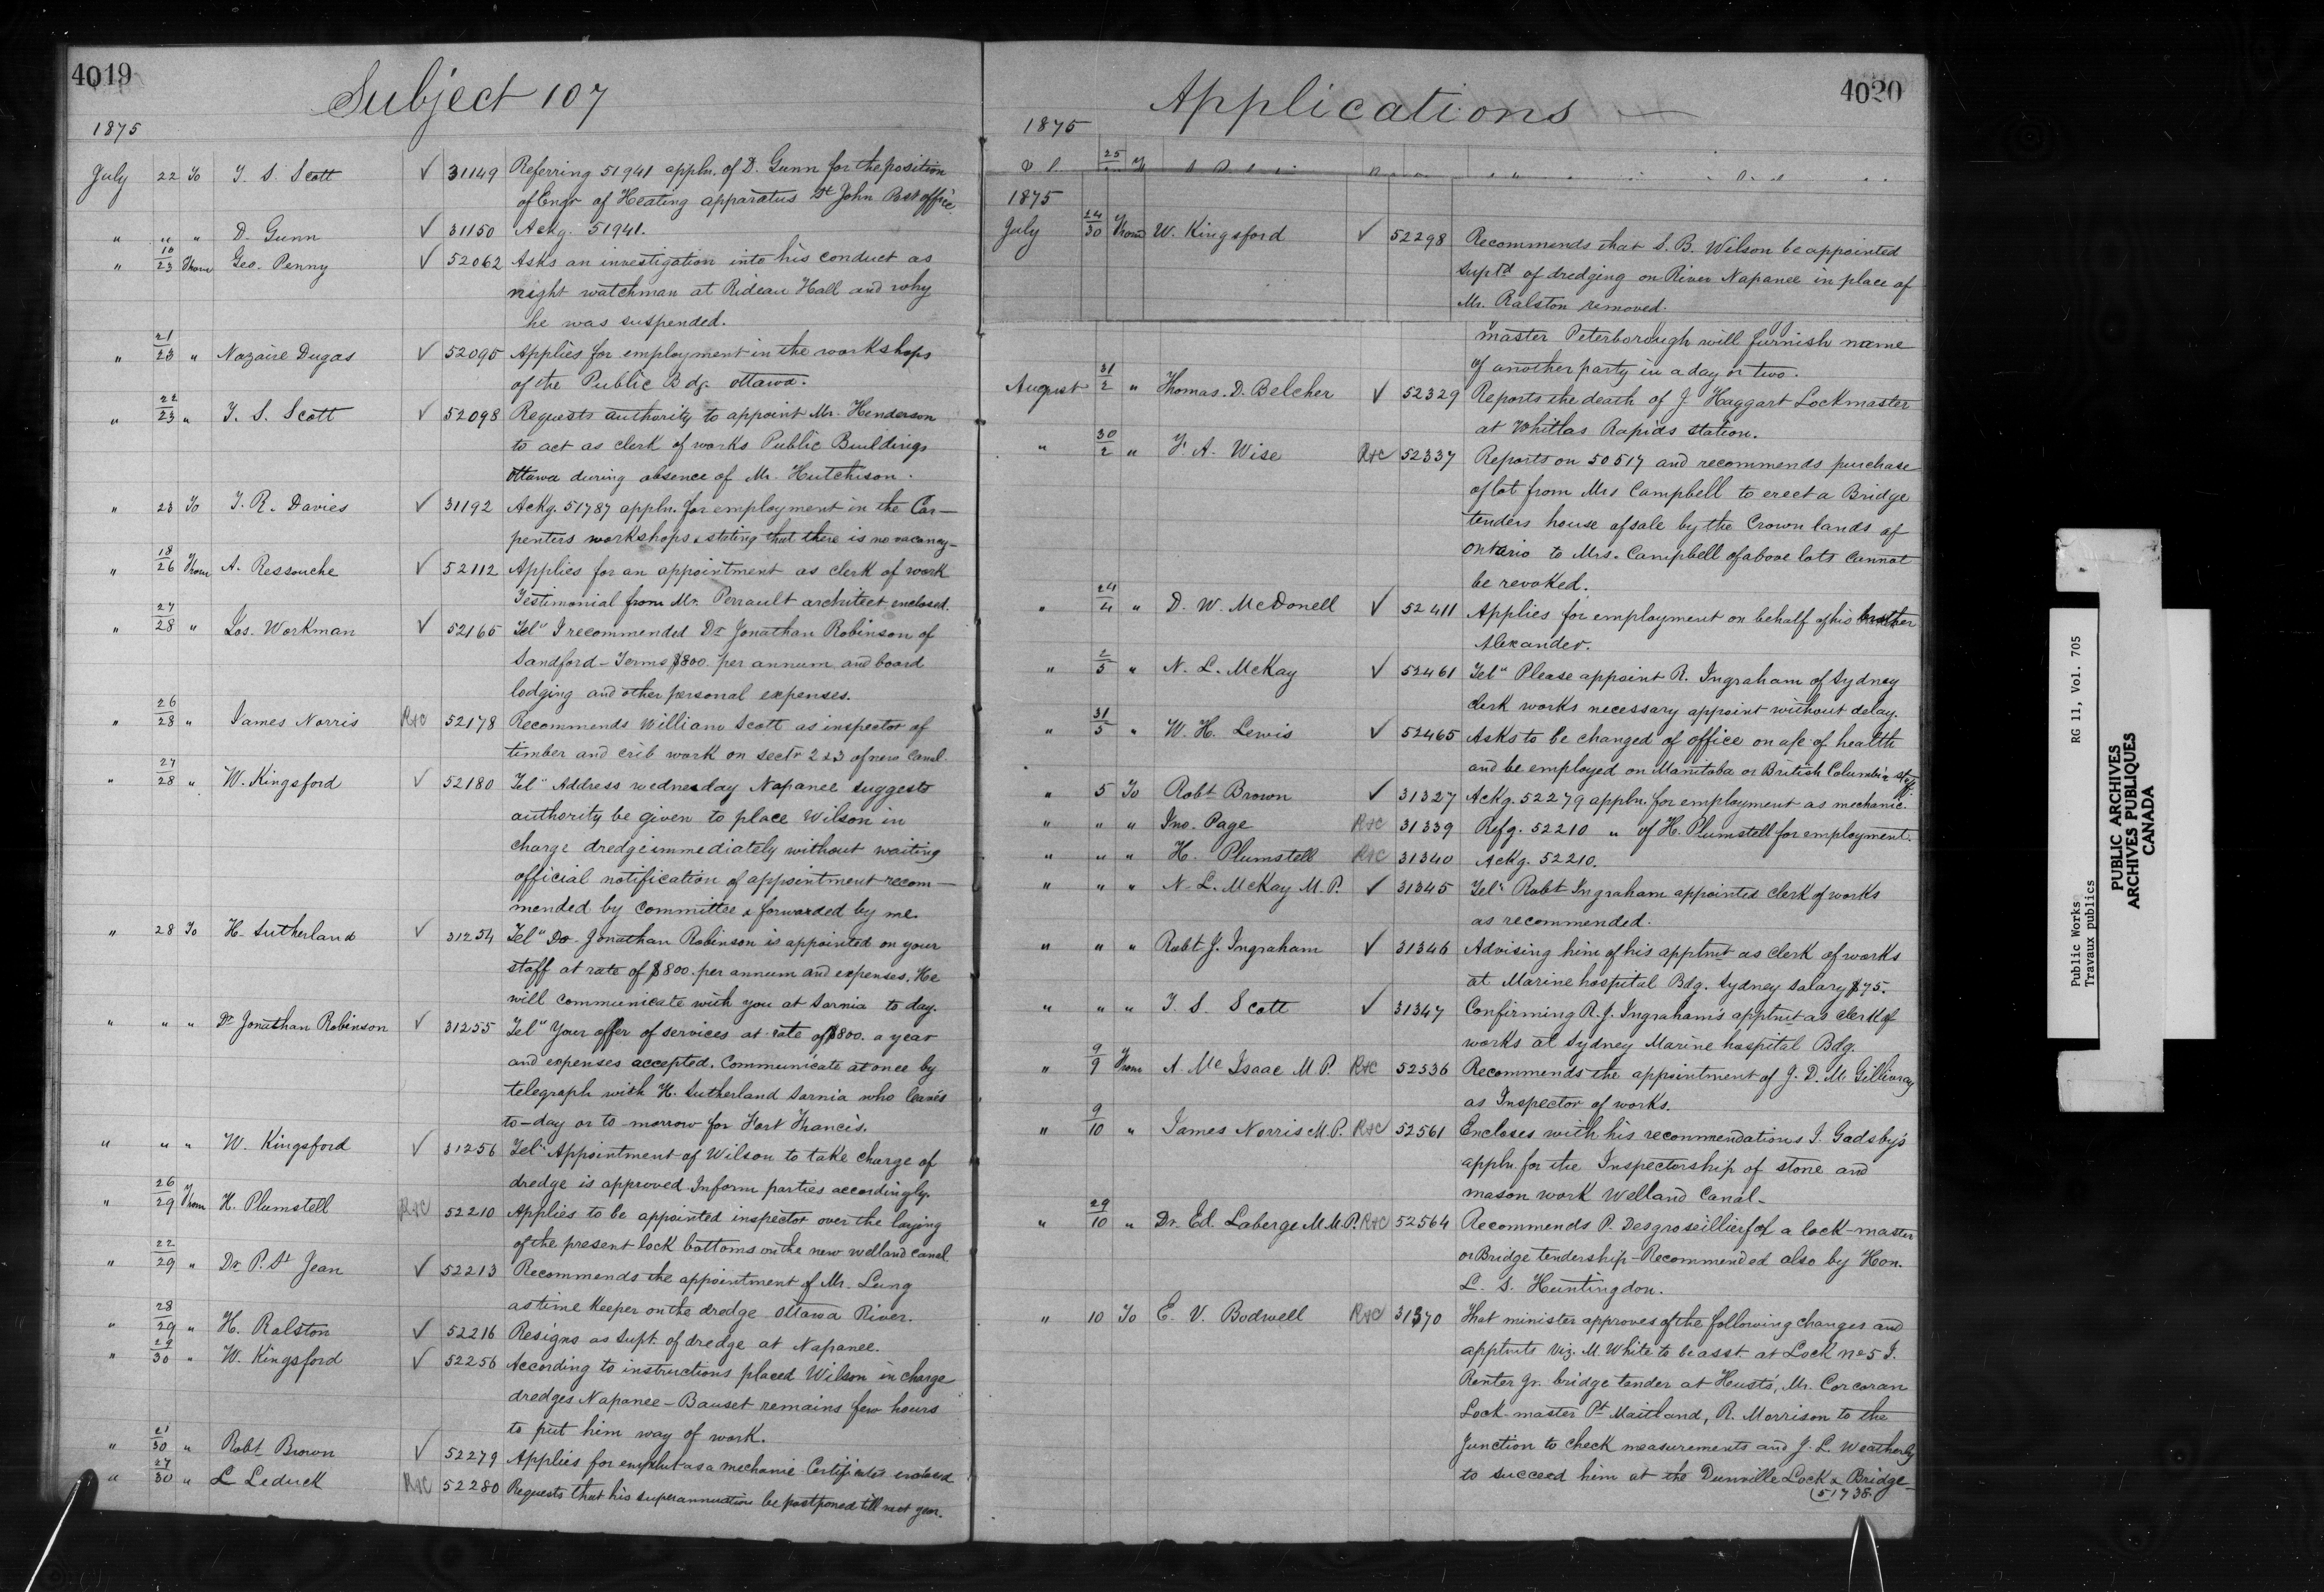 4019
Subject 107
1875
July 22 To T. S. Scott ✓ 31149 Referring 51941 appln. of D. Gunn for the position
of Engr of Heating apparatus St John Post office.
" " " D. Gunn ✓ 31150 Ackg. 51941.
" 10/23 From Geo. Penny ✓ 52062 Asks an investigation into his conduct as
night watchman at Rideau Hall and why
he was suspended.
" 21/23 " Nazaire Dugas ✓ 52095 Applies for employment in the workshops
of the Public Bdg. Ottawa.
" 22/23 " T. S. Scott ✓ 52098 Requests authority to appoint Mr. Henderson
to act as clerk of works Public Buildings
Ottawa during absence of Mr. Hutchison.
" 23 To J. R. Davies ✓ 31192 Ackg. 51787 appln. for employment in the Car-
penters workshops & stating that there is no vacancy-
" 18/26 From A. Ressouche ✓ 52112 Applies for an appointment as clerk of work
Testimonial from Mr. Perrault architect enclosed.
" 27/28 " Jos. Workman ✓ 52165 Tel" I recommended Dr Jonathan Robinson of
Sandford - Terms $800 per annum and board
lodging and other personal expenses.
" 26/28 " James Norris R&C 52178 Recommends William Scott as inspector of
timber and crib work on sectn 2 & 3 of new Canal
" 27/28 " W. Kingsford ✓ 52180 Tel" Address wednesday Napanee suggests
authority be given to place Wilson in
charge dredge immediately without waiting
official notification of appointment recom-
mended by committee & forwarded by me.
" 28 To H. Sutherland ✓ 31254 Tel" Dr. Jonathan Robinson is appointed on your
staff at rate of $800. per annum and expenses. He
will communicate with you at Sarnia to day.
" " " Dr Jonathan Robinson ✓ 31255 Tel" Your offer of services at rate of $800. a year
and expenses accepted. Communicate at once by
telegraph with H. Sutherland Sarnia who leaves
to-day or to-morrow for Fort Francis.
" " " W. Kingsford ✓ 31256 Tel" Appointment of Wilson to take charge of
dredge is approved. Inform parties accordingly.
" 26/29 From H. Plumstell R&C 52210 Applies to be appointed inspector over the laying
of the present lock bottoms on the new welland canal
" 22/29 " Dr P. St Jean ✓ 52213 Recommends the appointment of Mr. Lung
as time keeper on the dredge Ottawa River.
" 28/29 " H. Ralston ✓ 52216 Resigns as Supt. of dredge at Napanee.
" 29/30 " W. Kingsford ✓ 52256 According to instructions placed Wilson in charge
dredges Napanee - Bauset remains few hours
to put him way of work.
" 21/30 " Robt Brown ✓ 52279 Applies for emplmt as a mechanic Certificates enclosed
" 27/30 " L Leduck R&C 52280 Requests that his superannuation be postponed till next year.
4020
Applications
1875
25
1875
July 24/30 From W. Kingsford ✓ 52298 Recommends that S. B. Wilson be appointed
Suptd of dredging on River Napanee in place of
Mr. Ralston removed.
master Peterborough will furnish name
of another party in a day or two.
August 31/2 " Thomas. D. Belcher ✓ 52329 Reports the death of J Haggart Lockmaster
at Whitlas Rapids station.
" 30/2 " F. A. Wise R&C 52337 Reports on 50517 and recommends purchase
of lot from Mrs Campbell to erect a Bridge
tenders house of sale by the Crown lands of
Ontario to Mrs. Campbell of above lots cannot
be revoked.
" 24/4 " D. W. McDonell ✓ 52411 Applies for employment on behalf of his brother
Alexander.
" 2/5 " N. L. McKay ✓ 52461 Tel" Please appoint R. Ingraham of Sydney
clerk works necessary appoint without delay.
" 31/5 " W. H. Lewis ✓ 52465 Asks to be changed of office on a/c of health
and be employed on Manitoba or British Columbia staff.
" 5 To Robt Brown ✓ 31327 Ackg. 52279 appln. for employment as mechanic.
" " " Jno. Page R&C 31339 Refg. 52210 " of H. Plumstell for employment.
" " " H. Plumstell R&C 31340 Ackg. 52210.
" " " N. L. McKay M.P. ✓ 31345 Tel" Robt Ingraham appointed clerk of works
as recommended.
" " " Robt J. Ingraham ✓ 31346 Advising him of his apptmt as clerk of works
at Marine hospital Bdg. Sydney Salary $75.
" " " T. S. Scott ✓ 31347 Confirming R. J. Ingraham's apptmt as clerk of
works at Sydney Marine hospital Bdg.
" 9/9 From A. Mc Isaac M.P. R&C 52536 Recommends the appointment of J. D. McGillivray
as Inspector of works.
" 9/10 " James Norris M.P. R&C 52561 Encloses with his recommendations J. Gadsby's
appln. for the Inspectorship of stone and
mason work Welland Canal-
" 29/10 " Dr. Ed. Laberge M.M.P. R&C 52564 Recommends P. Desgroseillier for a lock-master
or Bridge tendership - Recommended also by Hon.
L. S. Huntingdon.
" 10 To E. V. Bodwell R&C 31370 That minister approves of the following changes and
apptmts viz. M. White to be asst at Lock No 5 J.
Renter Jr. bridge tender at Hust's, Mr. Corcoran
Lock-master Pt Maitland, R. Morrison to the
Junction to check measurements and J. L. Weatherby
to succeed him at the Dunville Lock & Bridge-
(51738.
Public Works RG 11, Vol. 705
Travaux publics
PUBLIC ARCHIVES
ARCHIVES PUBLIQUES
CANADA